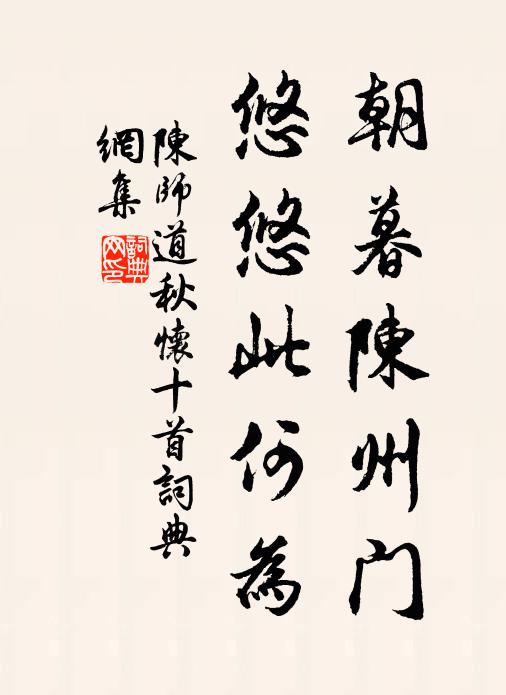 朝暮陳州门
悠悠此何為
陳師道秋懷十首詞典
網集
詞典
网印